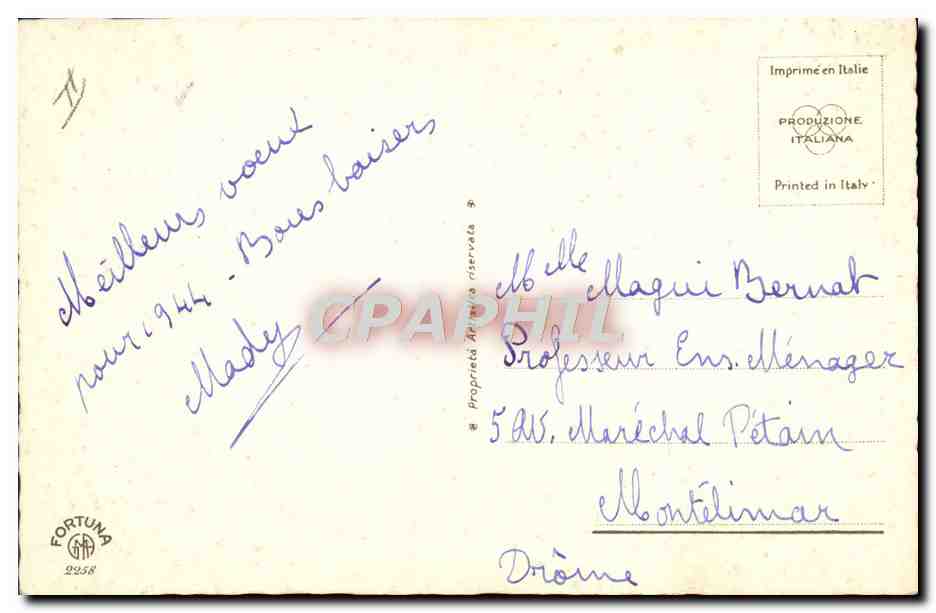 II
Meilleurs voeux
pour 1944 - Bons baisers
Mady
FORTUNA
2258
* Proprietà Artistica riservata *
Imprimé en Italie
PRODUZIONE
ITALIANA
Printed in Italy
CPAPHIL
Melle Magui Bernat
Professeur Ens. Ménager
5 av. Maréchal Pétain
Montélimar
Drôme